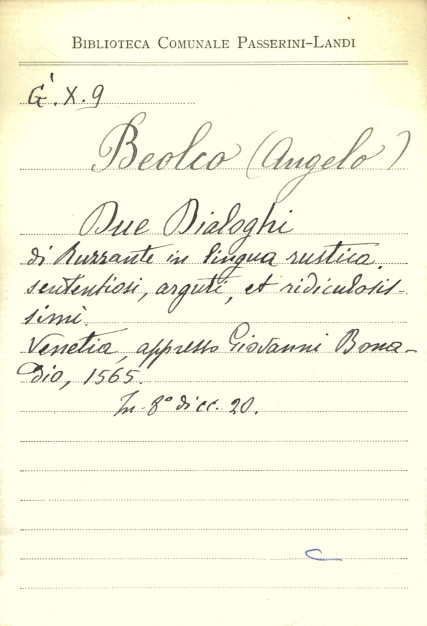 BIBLIOTECA COMUNALE PASSERINI-LANDI
G'. X. 9
Beolco (Angelo)
Due Dialoghi
di Ruzzante in lingua rustica,
sententiosi, arguti, et ridiculosis-
simi.
Venetia, appresso Giovanni Bona-
dio, 1565.
In-8° di cc. 20.